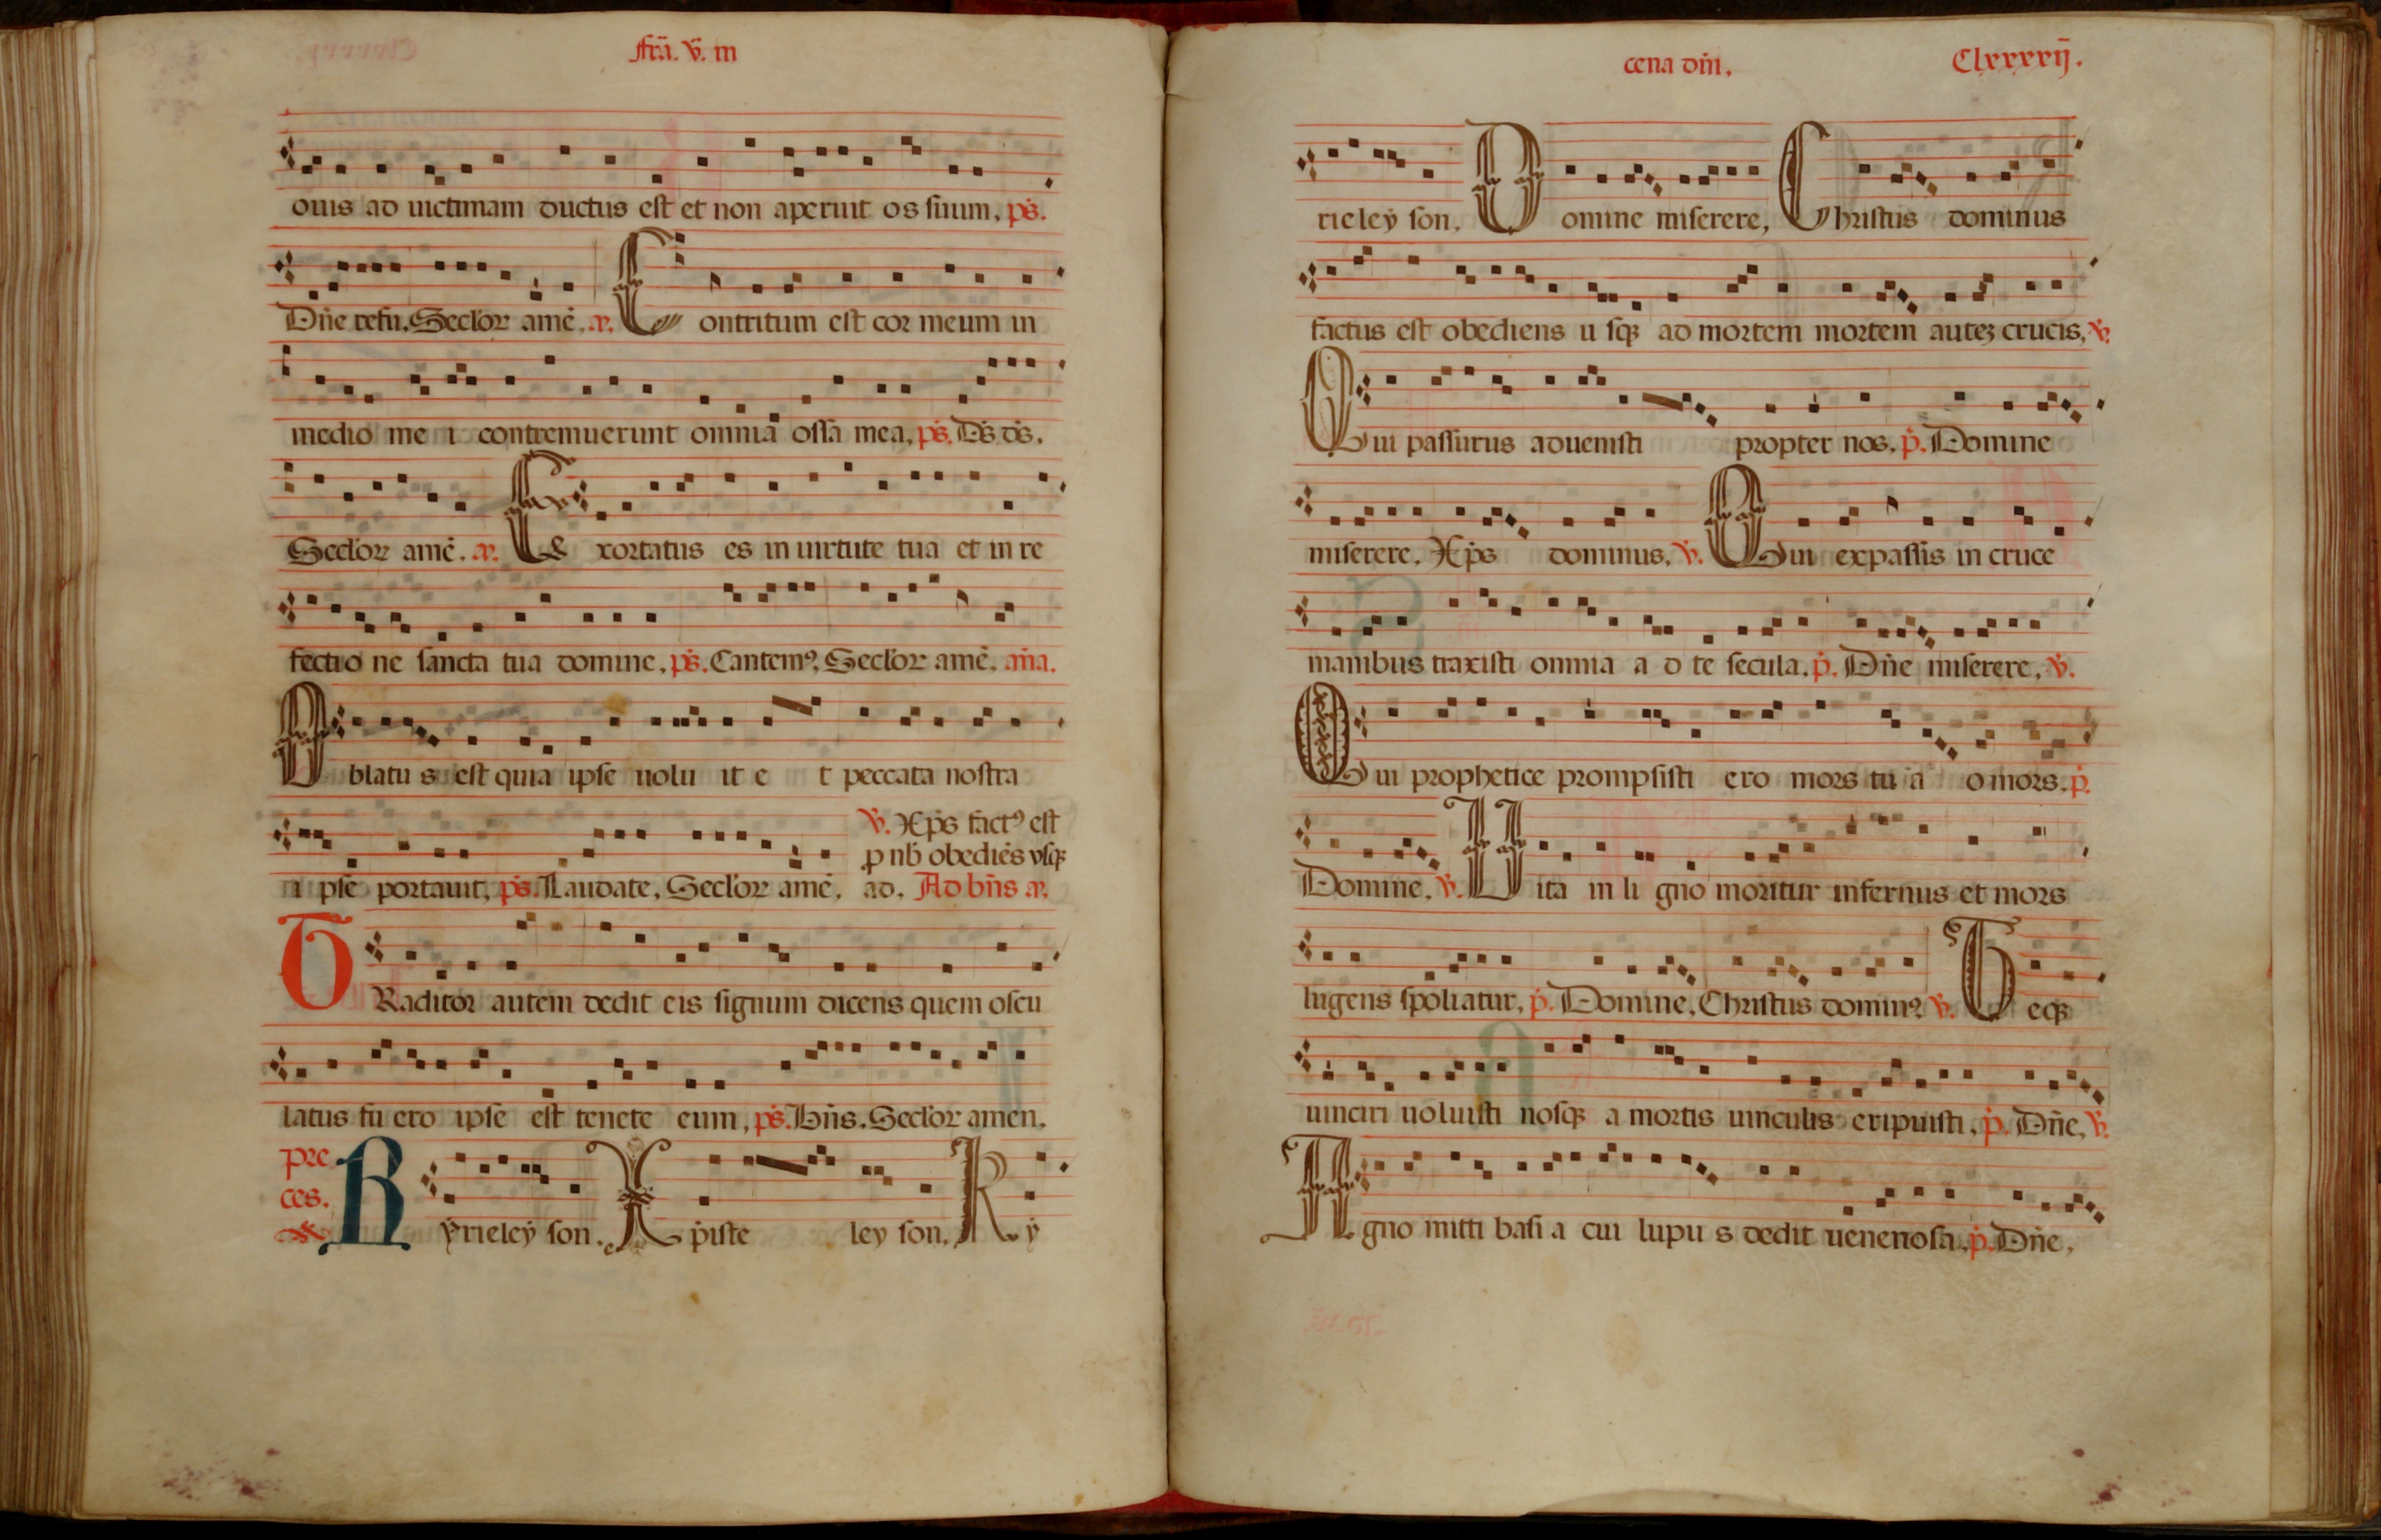 fr̄a. v̄. in
ouis ad uictimam ductus est et non aperuit os suum, ps̄.
Dn̄e refu. Seclor̄ amē. a.
Contritum est cor meum in
medio me i contremuerunt omnia ossa mea, ps̄. Ds̄ ds̄.
Seclor̄ amē. a. Exortatus es in uirtute tua et in re
fectio ne sancta tua domine, ps̄. Cantemꝰ, Seclor̄ amē. an̄a.
Oblatu s est quia ipse uolu it e t peccata nostra
v̄. Xp̄s factꝰ est
ꝓ nb̄ obediēs vsqꝫ
i pse portauit, ps̄. Laudate, Seclor̄ amē, ad. Ad bn̄s a.
TRaditor autem dedit eis signum dicens quem oscu
latus fu ero ipse est tenete eum, ps̄. Bn̄s. Seclor̄ amen.
pre
ces.
Kyrieley son. Xpiste ley son, K y
cena dn̄i.
Clxxxxij̄.
rieley son, Domine miserere, Christus dominus
factus est obediens u sqꝫ ad mortem mortem auteꝫ crucis, v̄.
Qui passurus aduenisti propter nos. p̄. Domine
miserere. Xp̄s dominus, v̄. Qui expassis in cruce
manibus traxisti omnia a d te secula. p̄. Dn̄e miserere, v̄.
Qui prophetice prompsisti ero mors tu a o mors. p̄.
Domine, v̄. Uita in li gno moritur infernus et mors
lugens spoliatur, p̄. Domine. Christus dominꝰ. v̄. Teqꝫ
uinciri uoluisti nosqꝫ a mortis uinculis eripuisti, p̄. Dn̄e, v̄.
Agno mitti basi a cui lupu s dedit uenenosa, p̄. Dn̄e,